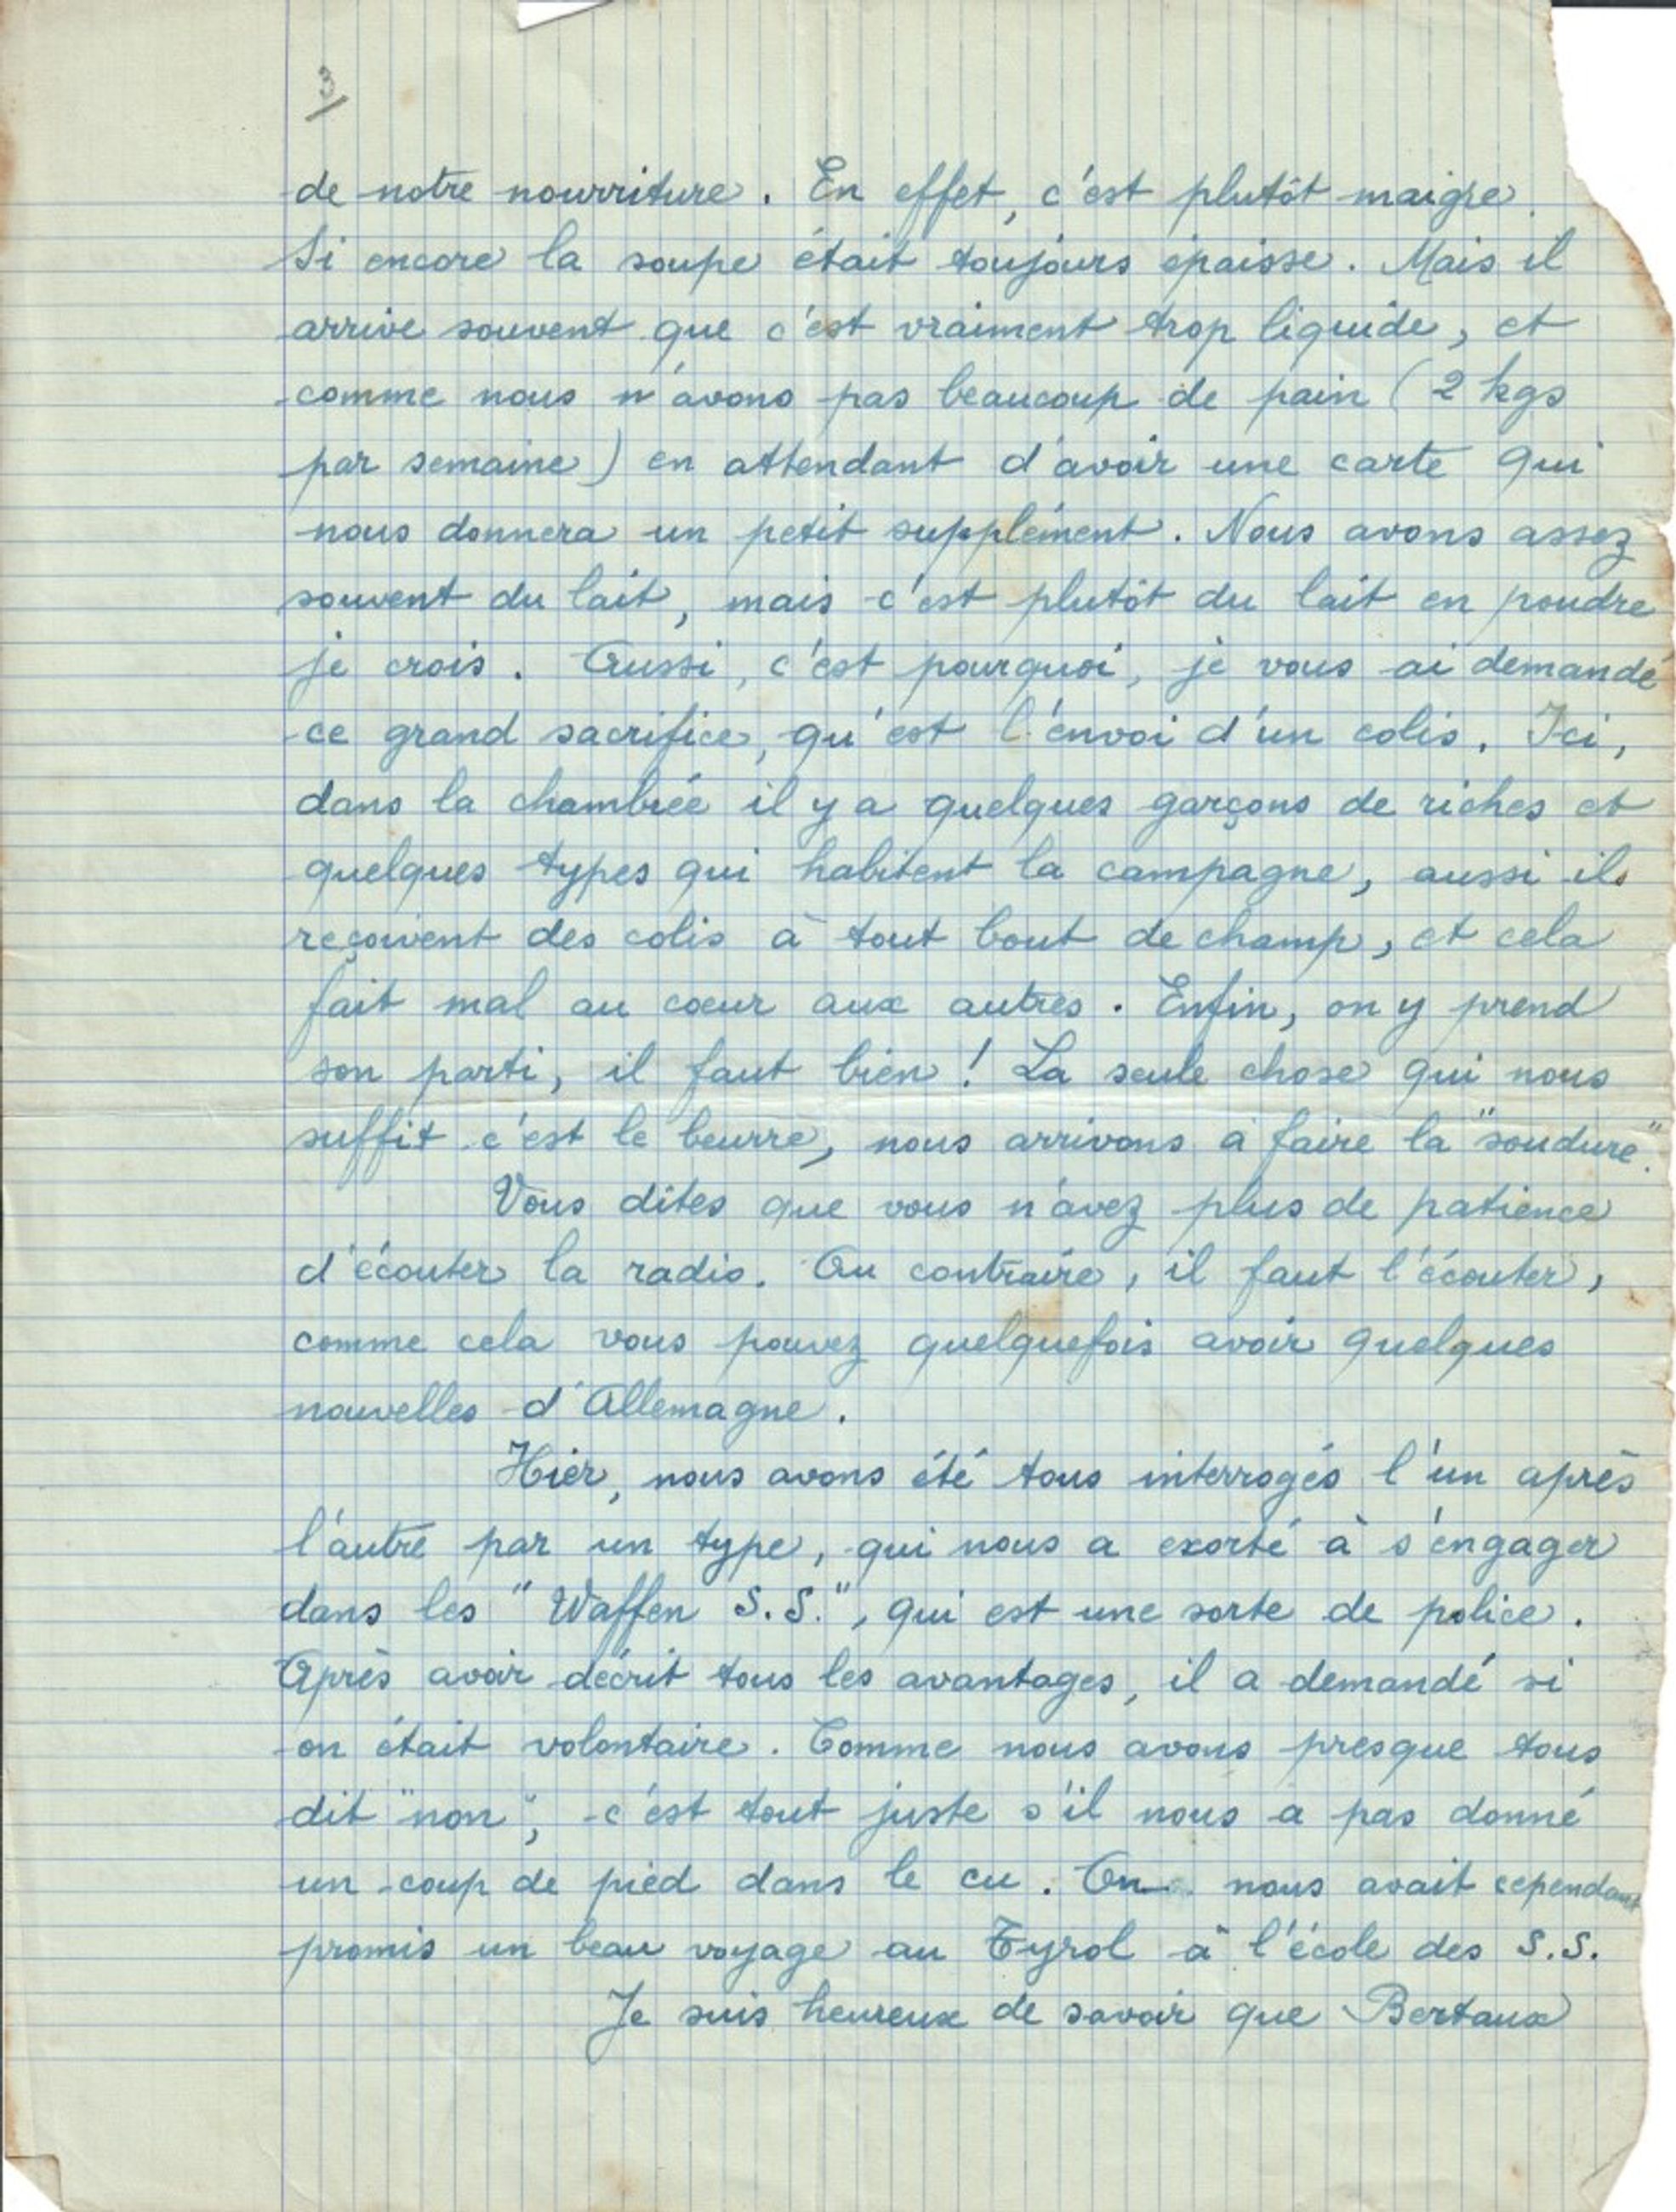 3
de notre nourriture. En effet, c'est plutôt maigre.
Si encore la soupe était toujours épaisse. Mais il
arrive souvent que c'est vraiment trop liquide, et
comme nous n'avons pas beaucoup de pain (2 kgs
par semaine) en attendant d'avoir une carte qui
nous donnera un petit supplément. Nous avons assez
souvent du lait, mais c'est plutôt du lait en poudre
je crois. Aussi, c'est pourquoi, je vous ai demandé
ce grand sacrifice, qu'est l'envoi d'un colis. Ici,
dans la chambrée il y a quelques garçons de riches et
quelques types qui habitent la campagne, aussi ils
reçoivent des colis à tout bout de champ, et cela
fait mal au coeur aux autres. Enfin, on y prend
son parti, il faut bien! La seule chose qui nous
suffit c'est le beurre, nous arrivons à faire la "soudure".
Vous dites que vous n'avez plus de patience
d'écouter la radio. Au contraire, il faut l'écouter,
comme cela vous pouvez quelquefois avoir quelques
nouvelles d'Allemagne.
Hier, nous avons été tous interrogés l'un après
l'autre par un type, qui nous a exorté à s'engager
dans les "Waffen S.S.", qui est une sorte de police.
Après avoir décrit tous les avantages, il a demandé si
on était volontaire. Comme nous avons presque tous
dit "non", c'est tout juste s'il nous a pas donné
un coup de pied dans le cu. On nous avait cependant
promis un beau voyage au Tyrol à l'école des S.S.
Je suis heureux de savoir que Bertaux